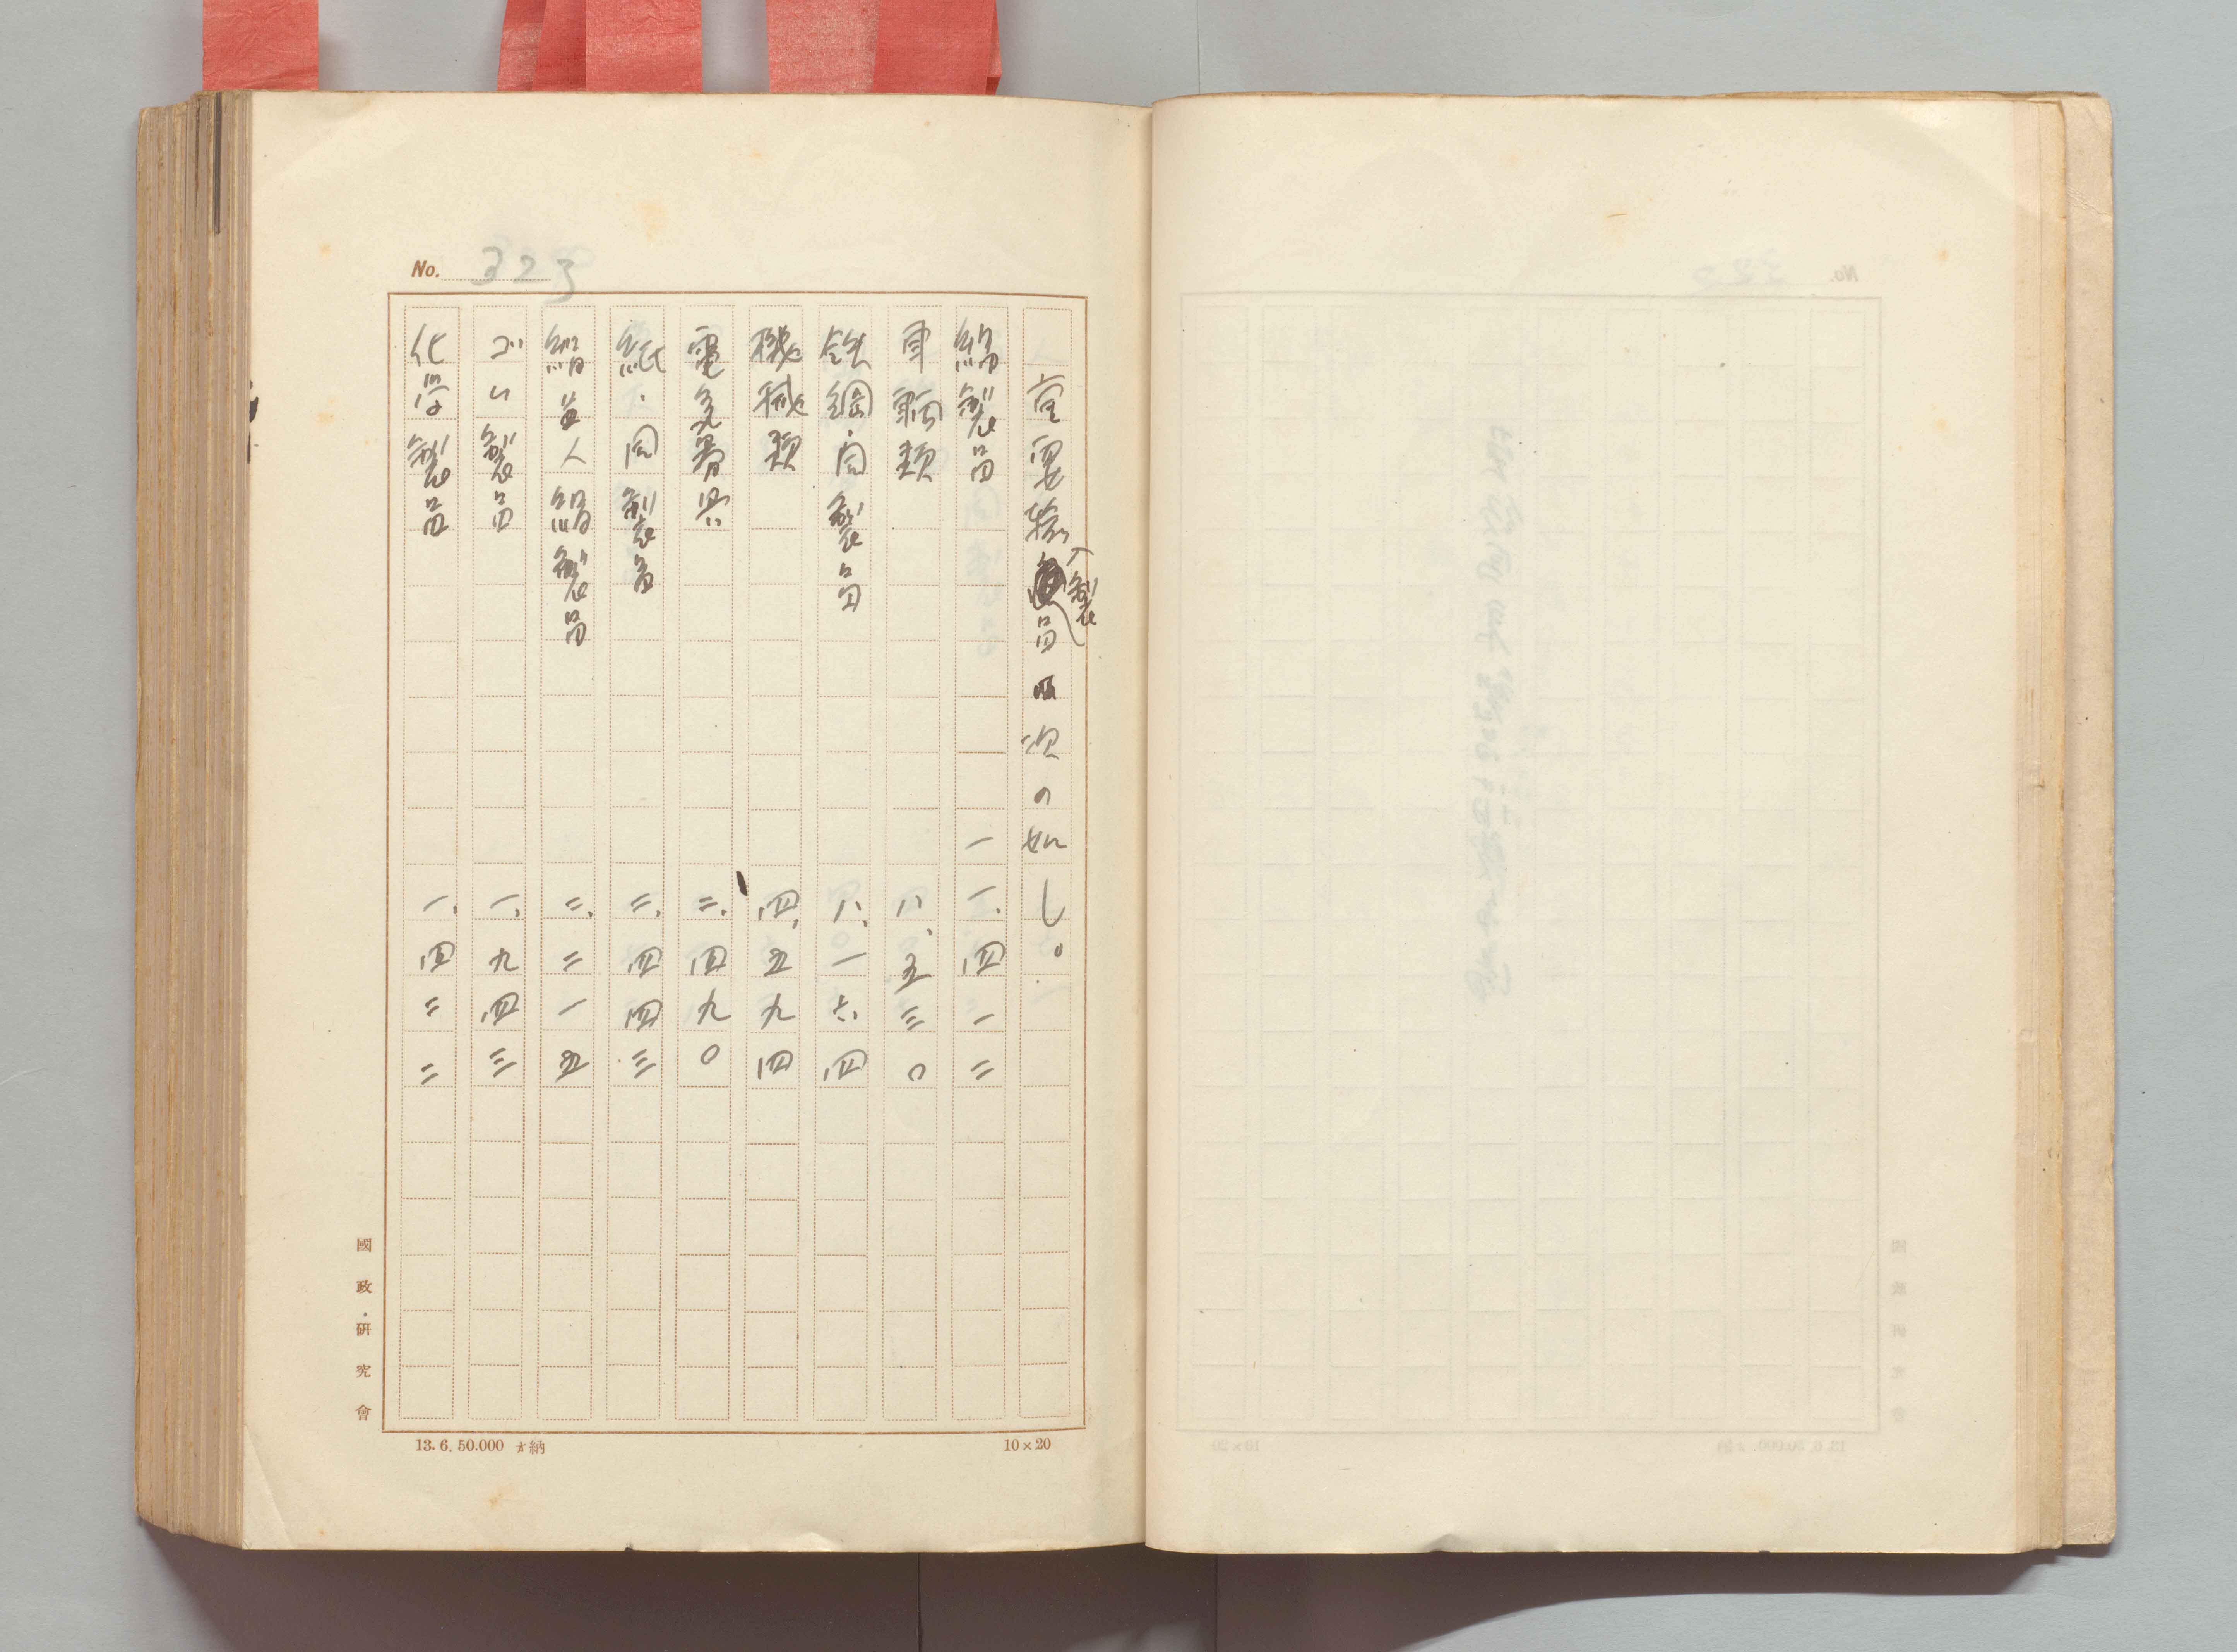 No. 323
主要輸入製品次の如し。
綿製品 一一、四一二
車輌類 八、五三〇
鉄鋼・同製品 八、一六四
機械類 四、五九四
電気器具 二、四九〇
紙・同製品 二、四四三
絹並人絹製品 二、二一五
ゴム製品 一、九四三
化学製品 一、四二二
國政研究會
13. 6. 50.000 納
10×20